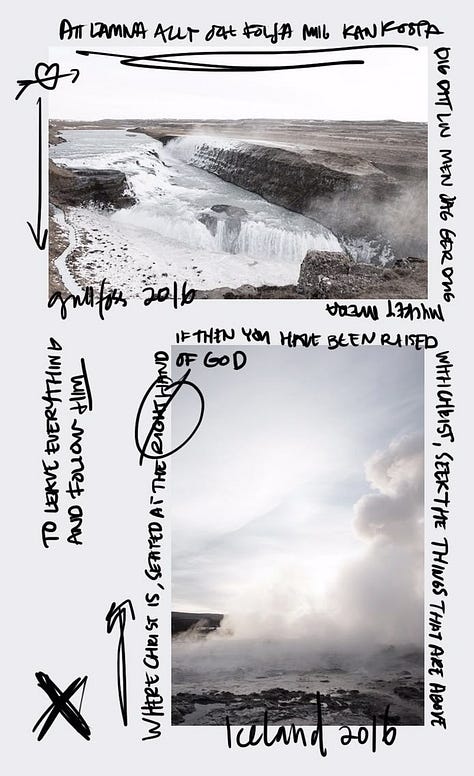 ATT LAMNA ALLT OCH FÖLJA MIG KAN KOSTA
DIG DITT LIV MEN JAG GER DIG
MYCKET MERA
gullfoss 2016
TO LEAVE EVERYTHING
AND FOLLOW HIM
IF THEN YOU HAVE BEEN RAISED
WITH CHRIST, SEEK THE THINGS THAT ARE ABOVE
WHERE CHRIST IS, SEATED AT THE RIGHT HAND
OF GOD
Iceland 2016